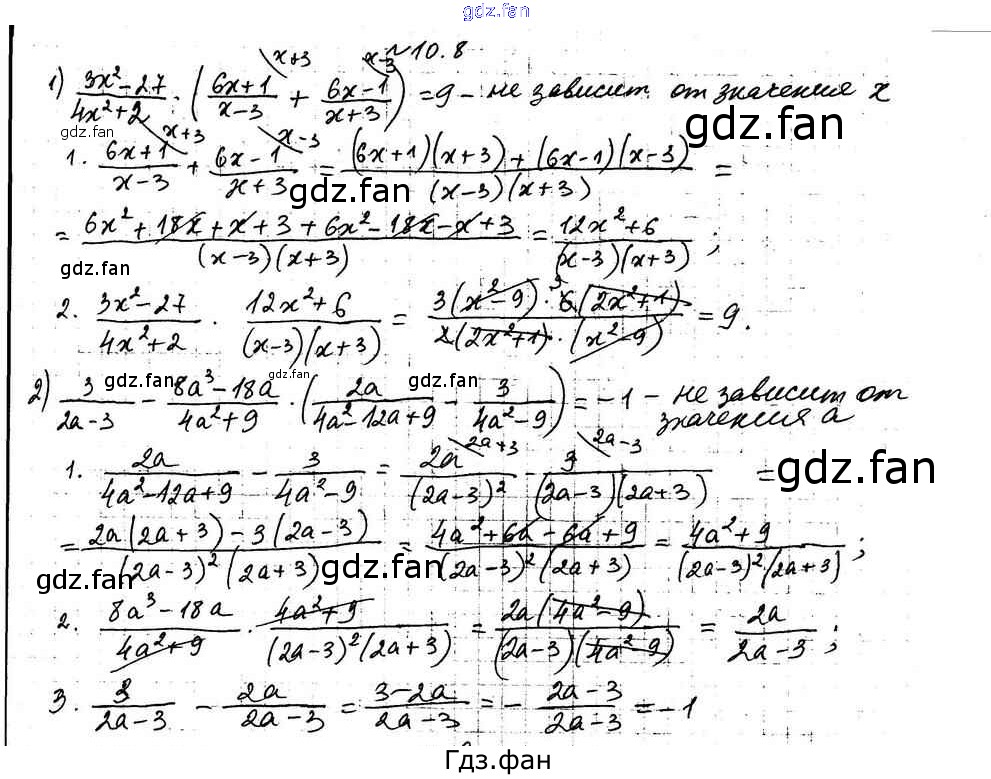 gdz.fan
№10.8
1) (3x²-27)/(4x²+2) · ((6x+1)/(x-3) + (6x-1)/(x+3)) = 9 - не зависит от значения x
gdz.fan gdz.fan gdz.fan
1. (6x+1)/(x-3) + (6x-1)/(x+3) = ((6x+1)(x+3)+(6x-1)(x-3))/((x-3)(x+3)) =
gdz.fan
= (6x²+18x+x+3+6x²-18x-x+3)/((x-3)(x+3)) = (12x²+6)/((x-3)(x+3));
gdz.fan gdz.fan
2. (3x²-27)/(4x²+2) · (12x²+6)/((x-3)(x+3)) = (3(x²-9)·6(2x²+1))/(2(2x²+1)·(x²-9)) = 9.
gdz.fan gdz.fan gdz.fan
2) 3/(2a-3) - (8a³-18a)/(4a²+9) · (2a/(4a²-12a+9) - 3/(4a²-9)) = -1 - не зависит от
значения a
1. 2a/(4a²-12a+9) - 3/(4a²-9) = 2a/(2a-3)² - 3/((2a-3)(2a+3)) =
gdz.fan
= (2a(2a+3)-3(2a-3))/((2a-3)²(2a+3)) = (4a²+6a-6a+9)/((2a-3)²(2a+3)) = (4a²+9)/((2a-3)²(2a+3));
gdz.fan gdz.fan gdz.fan
2. (8a³-18a)/(4a²+9) · (4a²+9)/((2a-3)²(2a+3)) = (2a(4a²-9))/((2a-3)(4a²-9)) = 2a/(2a-3);
3. 3/(2a-3) - 2a/(2a-3) = (3-2a)/(2a-3) = -(2a-3)/(2a-3) = -1
Гдз.фан